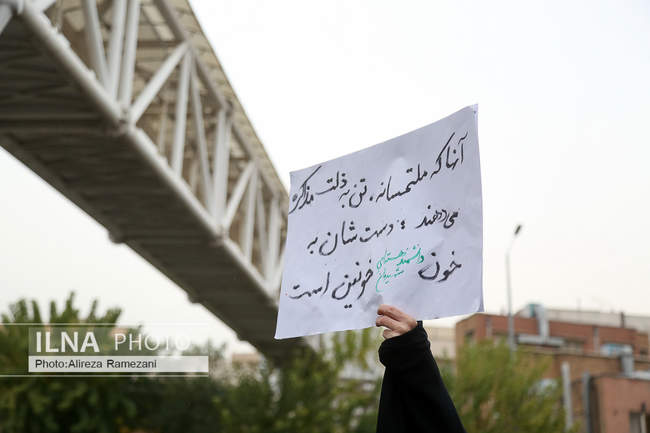 آنها که ملتمسانه، تن به ذلت مذاکره
می‌دهند؛ دست شان به
خون دانشمند هسته‌ای شهیدمان خونین است
ILNA PHOTO
Photo:Alireza Ramezani